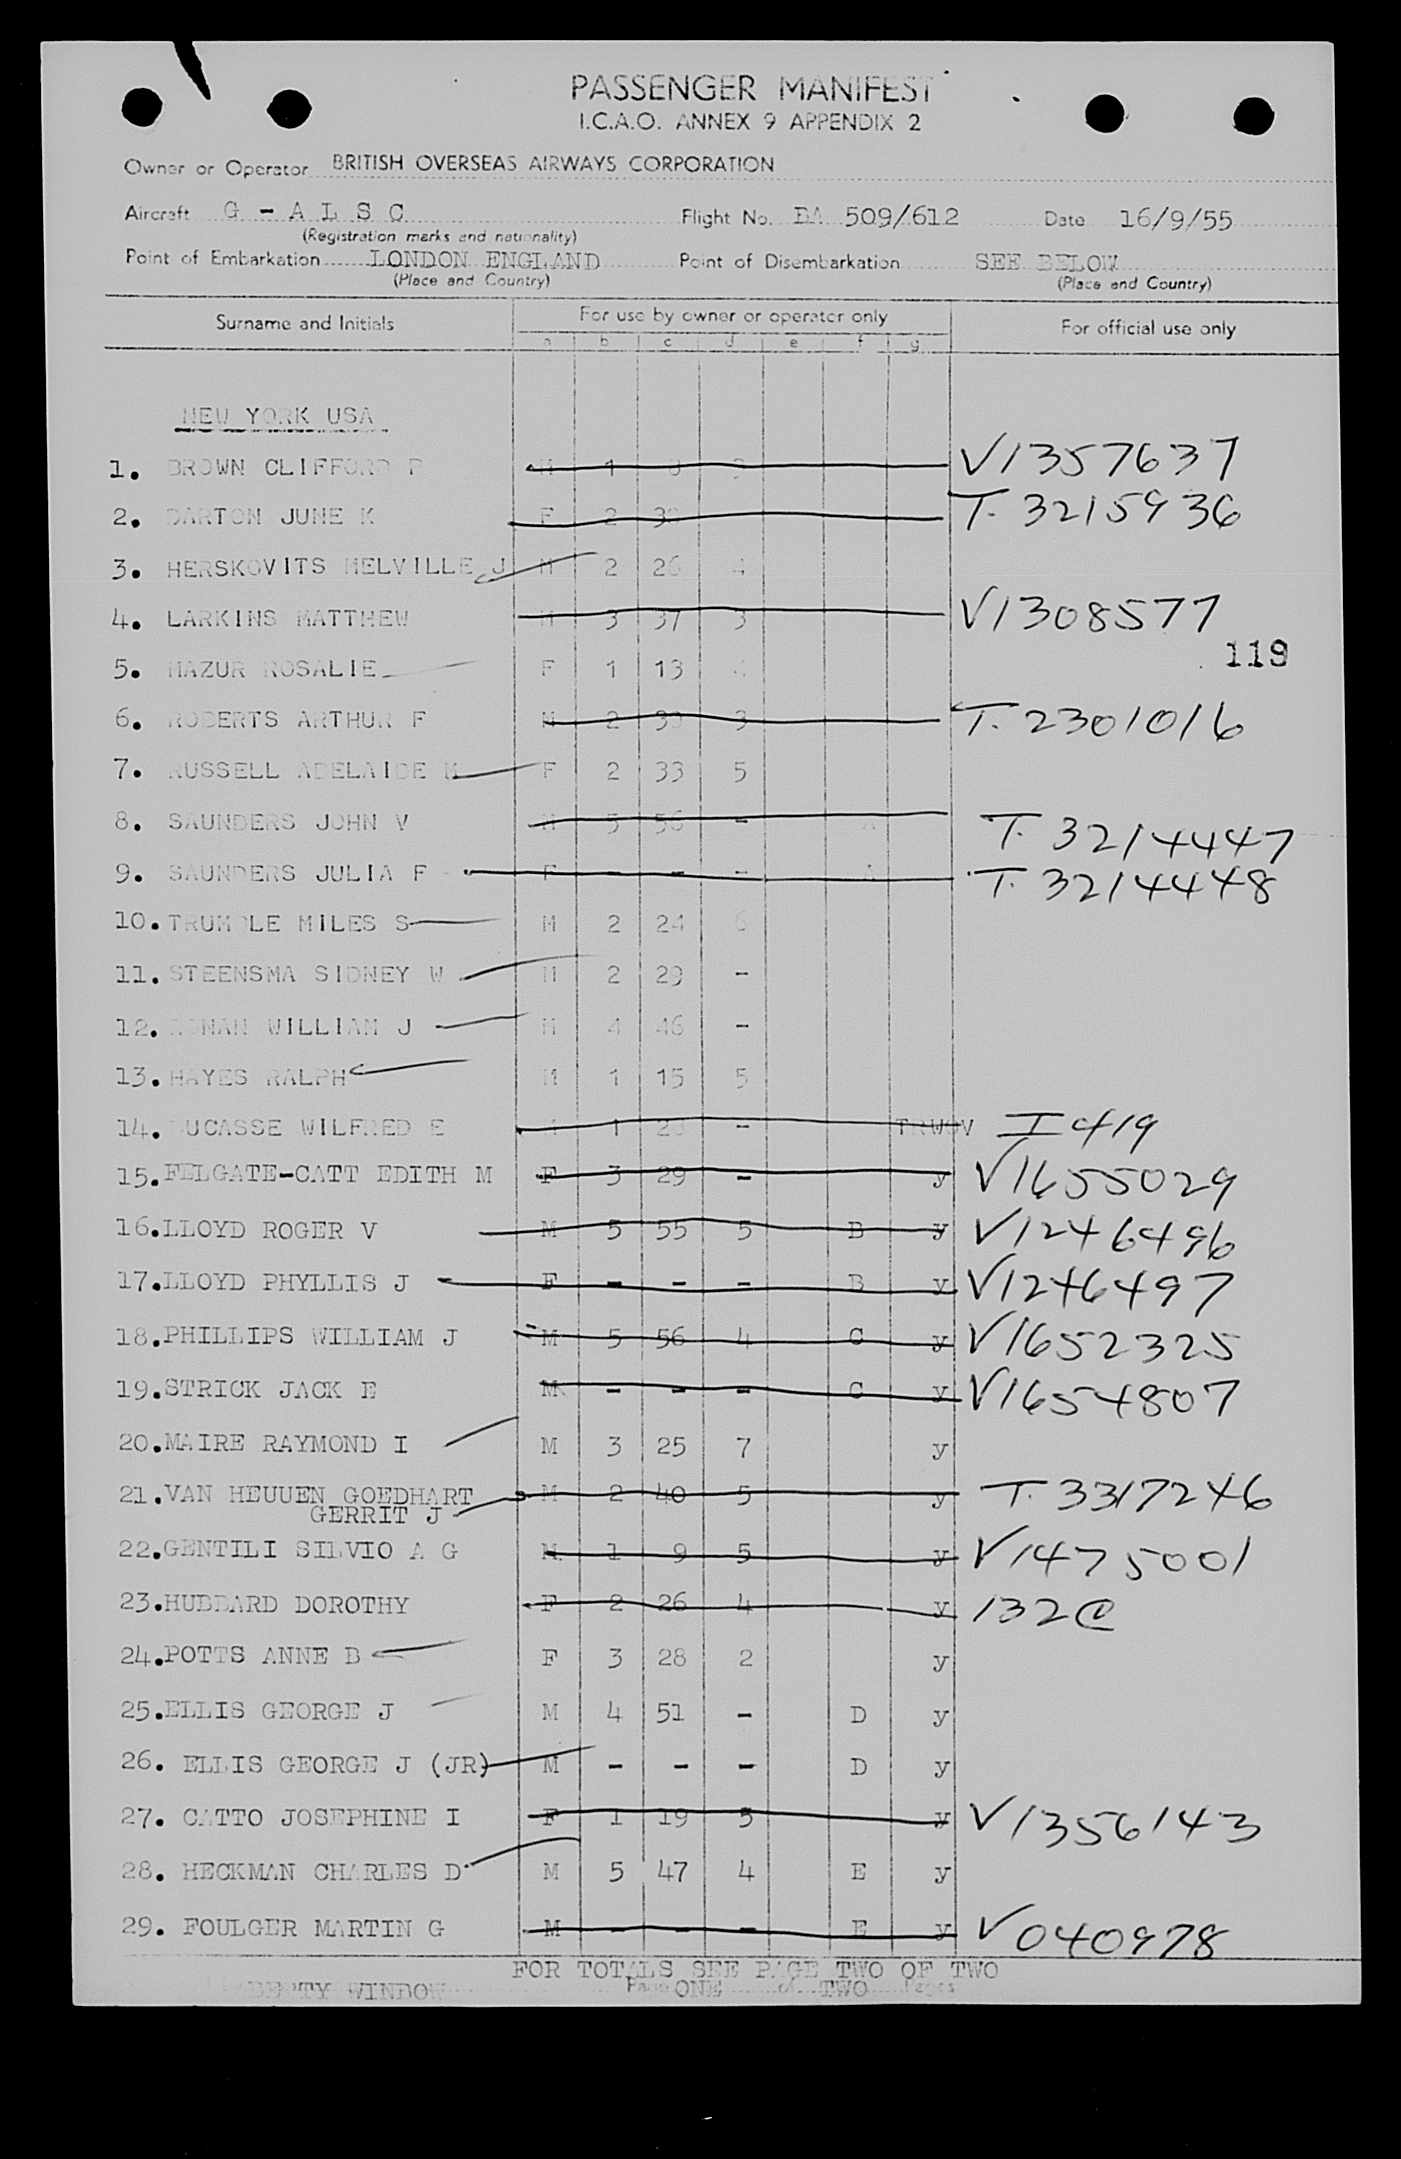 PASSENGER MANIFEST
I.C.A.O. ANNEX 9 APPENDIX 2
Owner or Operator BRITISH OVERSEAS AIRWAYS CORPORATION
Aircraft G - A L S C Flight No. BA 509/612 Date 16/9/55
(Registration marks and nationality)
Point of Embarkation LONDON ENGLAND Point of Disembarkation SEE BELOW
(Place and Country) (Place and Country)
Surname and Initials For use by owner or operator only For official use only
a b c d e f g
NEW YORK USA
1. BROWN CLIFFORD M 1 V1357637
2. DARTON JUNE K F 2 T. 3215936
3. HERSKOVITS MELVILLE J M 2 26 4
4. LARKINS MATTHEW M 3 37 3 V1308577
119
5. MAZUR ROSALIE F 1 13 4
6. ROBERTS ARTHUR F M 2 3 T. 2301016
7. RUSSELL ADELAIDE M F 2 33 5
8. SAUNDERS JOHN V M 5 56 - A T. 3214447
9. SAUNDERS JULIA F F - - - A T. 3214448
10. TRUMBLE MILES S M 2 24 6
11. STEENSMA SIDNEY W M 2 29 -
12. WILLIAM J M 4 46 -
13. HAYES RALPH M 1 15 5
14. DUCASSE WILFRED E M 1 - TRWOV I 419
15. FELGATE-CATT EDITH M F 3 29 - y V1655029
16. LLOYD ROGER V M 5 55 5 B y V1246496
17. LLOYD PHYLLIS J F - - - B y V1246497
18. PHILLIPS WILLIAM J M 5 56 4 C y V1652325
19. STRICK JACK E M - - - C y V1654807
20. MAIRE RAYMOND I M 3 25 7 y
21. VAN HEUUEN GOEDHART M 2 40 5 y T. 3317246
GERRIT J
22. GENTILI SILVIO A G M 1 9 5 y V1475001
23. HUBBARD DOROTHY F 2 26 4 y 132@
24. POTTS ANNE B F 3 28 2 y
25. ELLIS GEORGE J M 4 51 - D y
26. ELLIS GEORGE J (JR) M - - - D y
27. CATTO JOSEPHINE I F 1 19 5 y V1356143
28. HECKMAN CHARLES D M 5 47 4 E y
29. FOULGER MARTIN G M - - - E y V040978
FOR TOTALS SEE PAGE TWO OF TWO
WINDOW Page ONE of TWO Pages